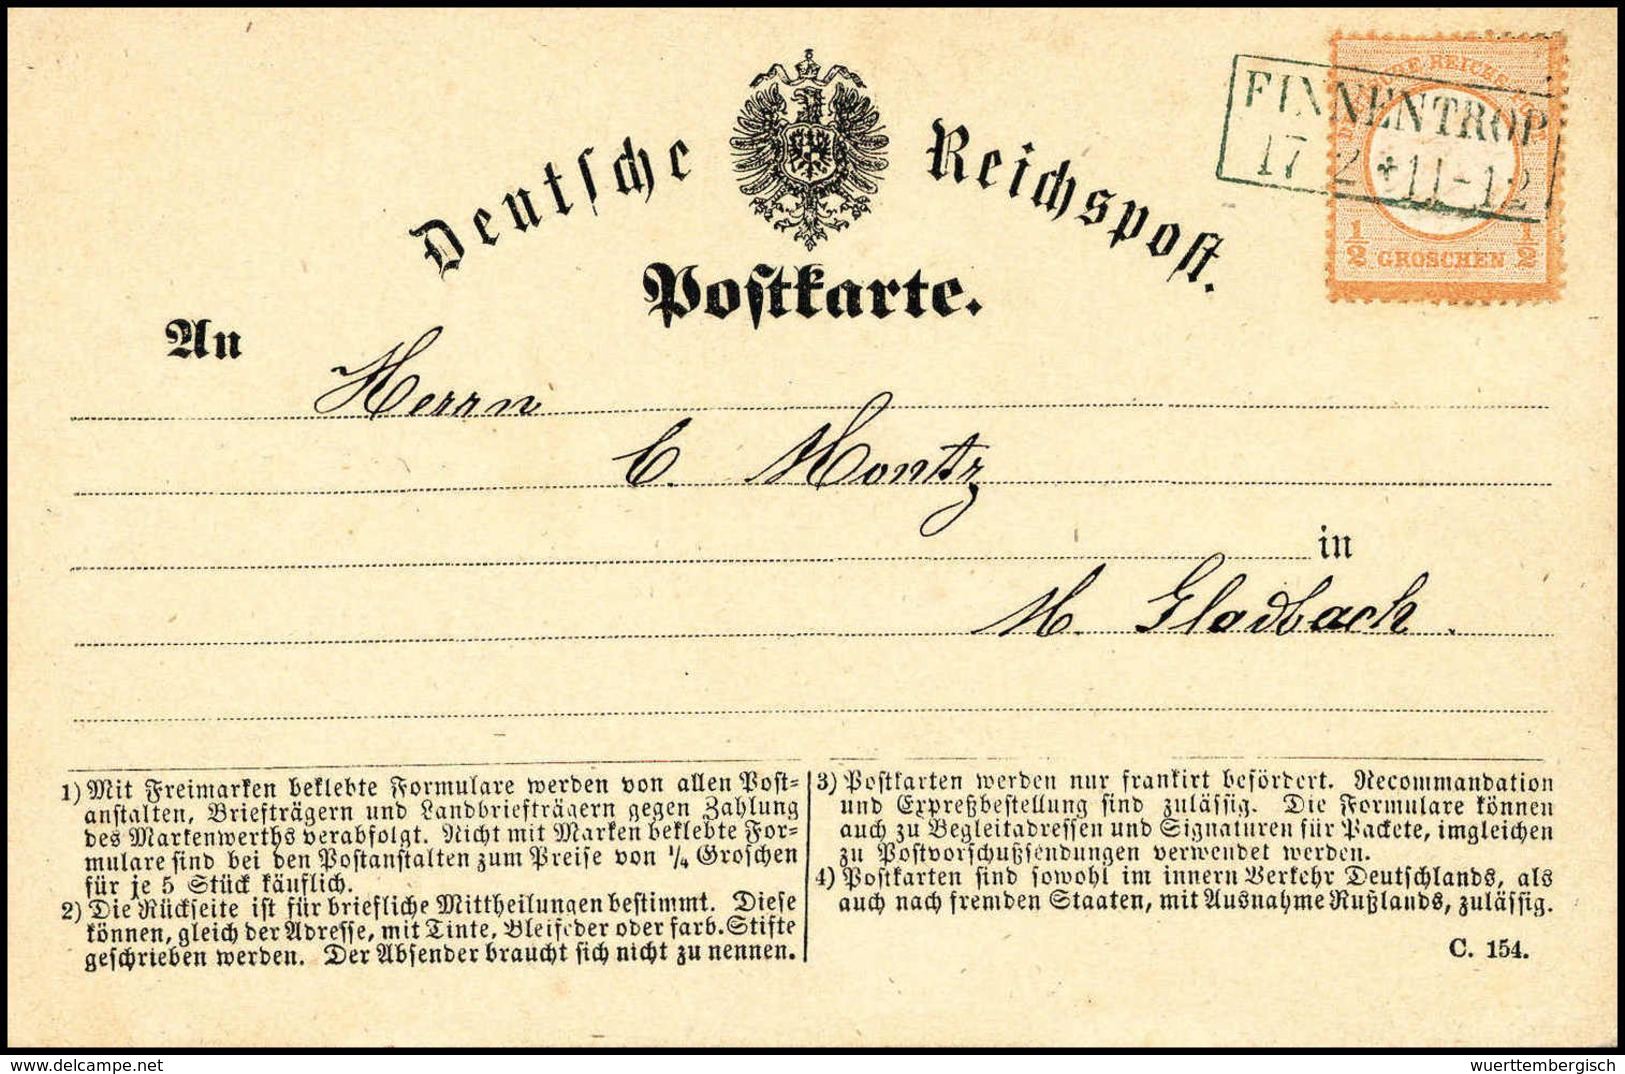 Deutsche Reichspost.
Postkarte.
DEUTSCHE REICHS-POST
FINNENTROP
17 2 * 11-12
½ GROSCHEN ½
An
Herrn
C. Montz
in
M. Gladbach.
1) Mit Freimarken beklebte Formulare werden von allen Post-
anstalten, Briefträgern und Landbriefträgern gegen Zahlung
des Markenwerths verabfolgt. Nicht mit Marken beklebte For-
mulare sind bei den Postanstalten zum Preise von ¼ Groschen
für je 5 Stück käuflich.
2) Die Rückseite ist für briefliche Mittheilungen bestimmt. Diese
können, gleich der Adresse, mit Tinte, Bleifeder oder farb. Stifte
geschrieben werden. Der Absender braucht sich nicht zu nennen.
3) Postkarten werden nur frankirt befördert. Recommandation
und Expreßbestellung sind zulässig. Die Formulare können
auch zu Begleitadressen und Signaturen für Packete, imgleichen
zu Postvorschußsendungen verwendet werden.
4) Postkarten sind sowohl im innern Verkehr Deutschlands, als
auch nach fremden Staaten, mit Ausnahme Rußlands, zulässig.
C. 154.
delcampe.net
wuerttembergisch